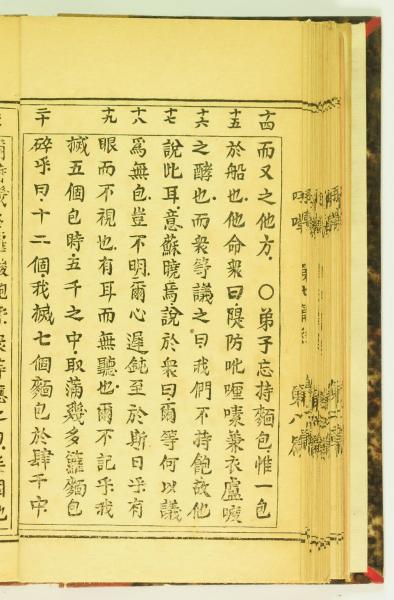 十四 而又之他方。○弟子忘持麵包惟一包
十五 於船也他命衆曰隄防吡喱嗉兼衣盧噯
十六 之酵也而衆等議之曰我們不持飽故他
十七 說此耳意蘇曉焉說於衆曰爾等何以議
十八 爲無包豈不明爾心遲鈍至於斯日乎有
十九 眼而不視也有耳而無聽也爾不記乎我
搣五個包時五千之中取滿幾多籮麵包
二十 碎乎曰十二個我搣七個麵包於肆千中